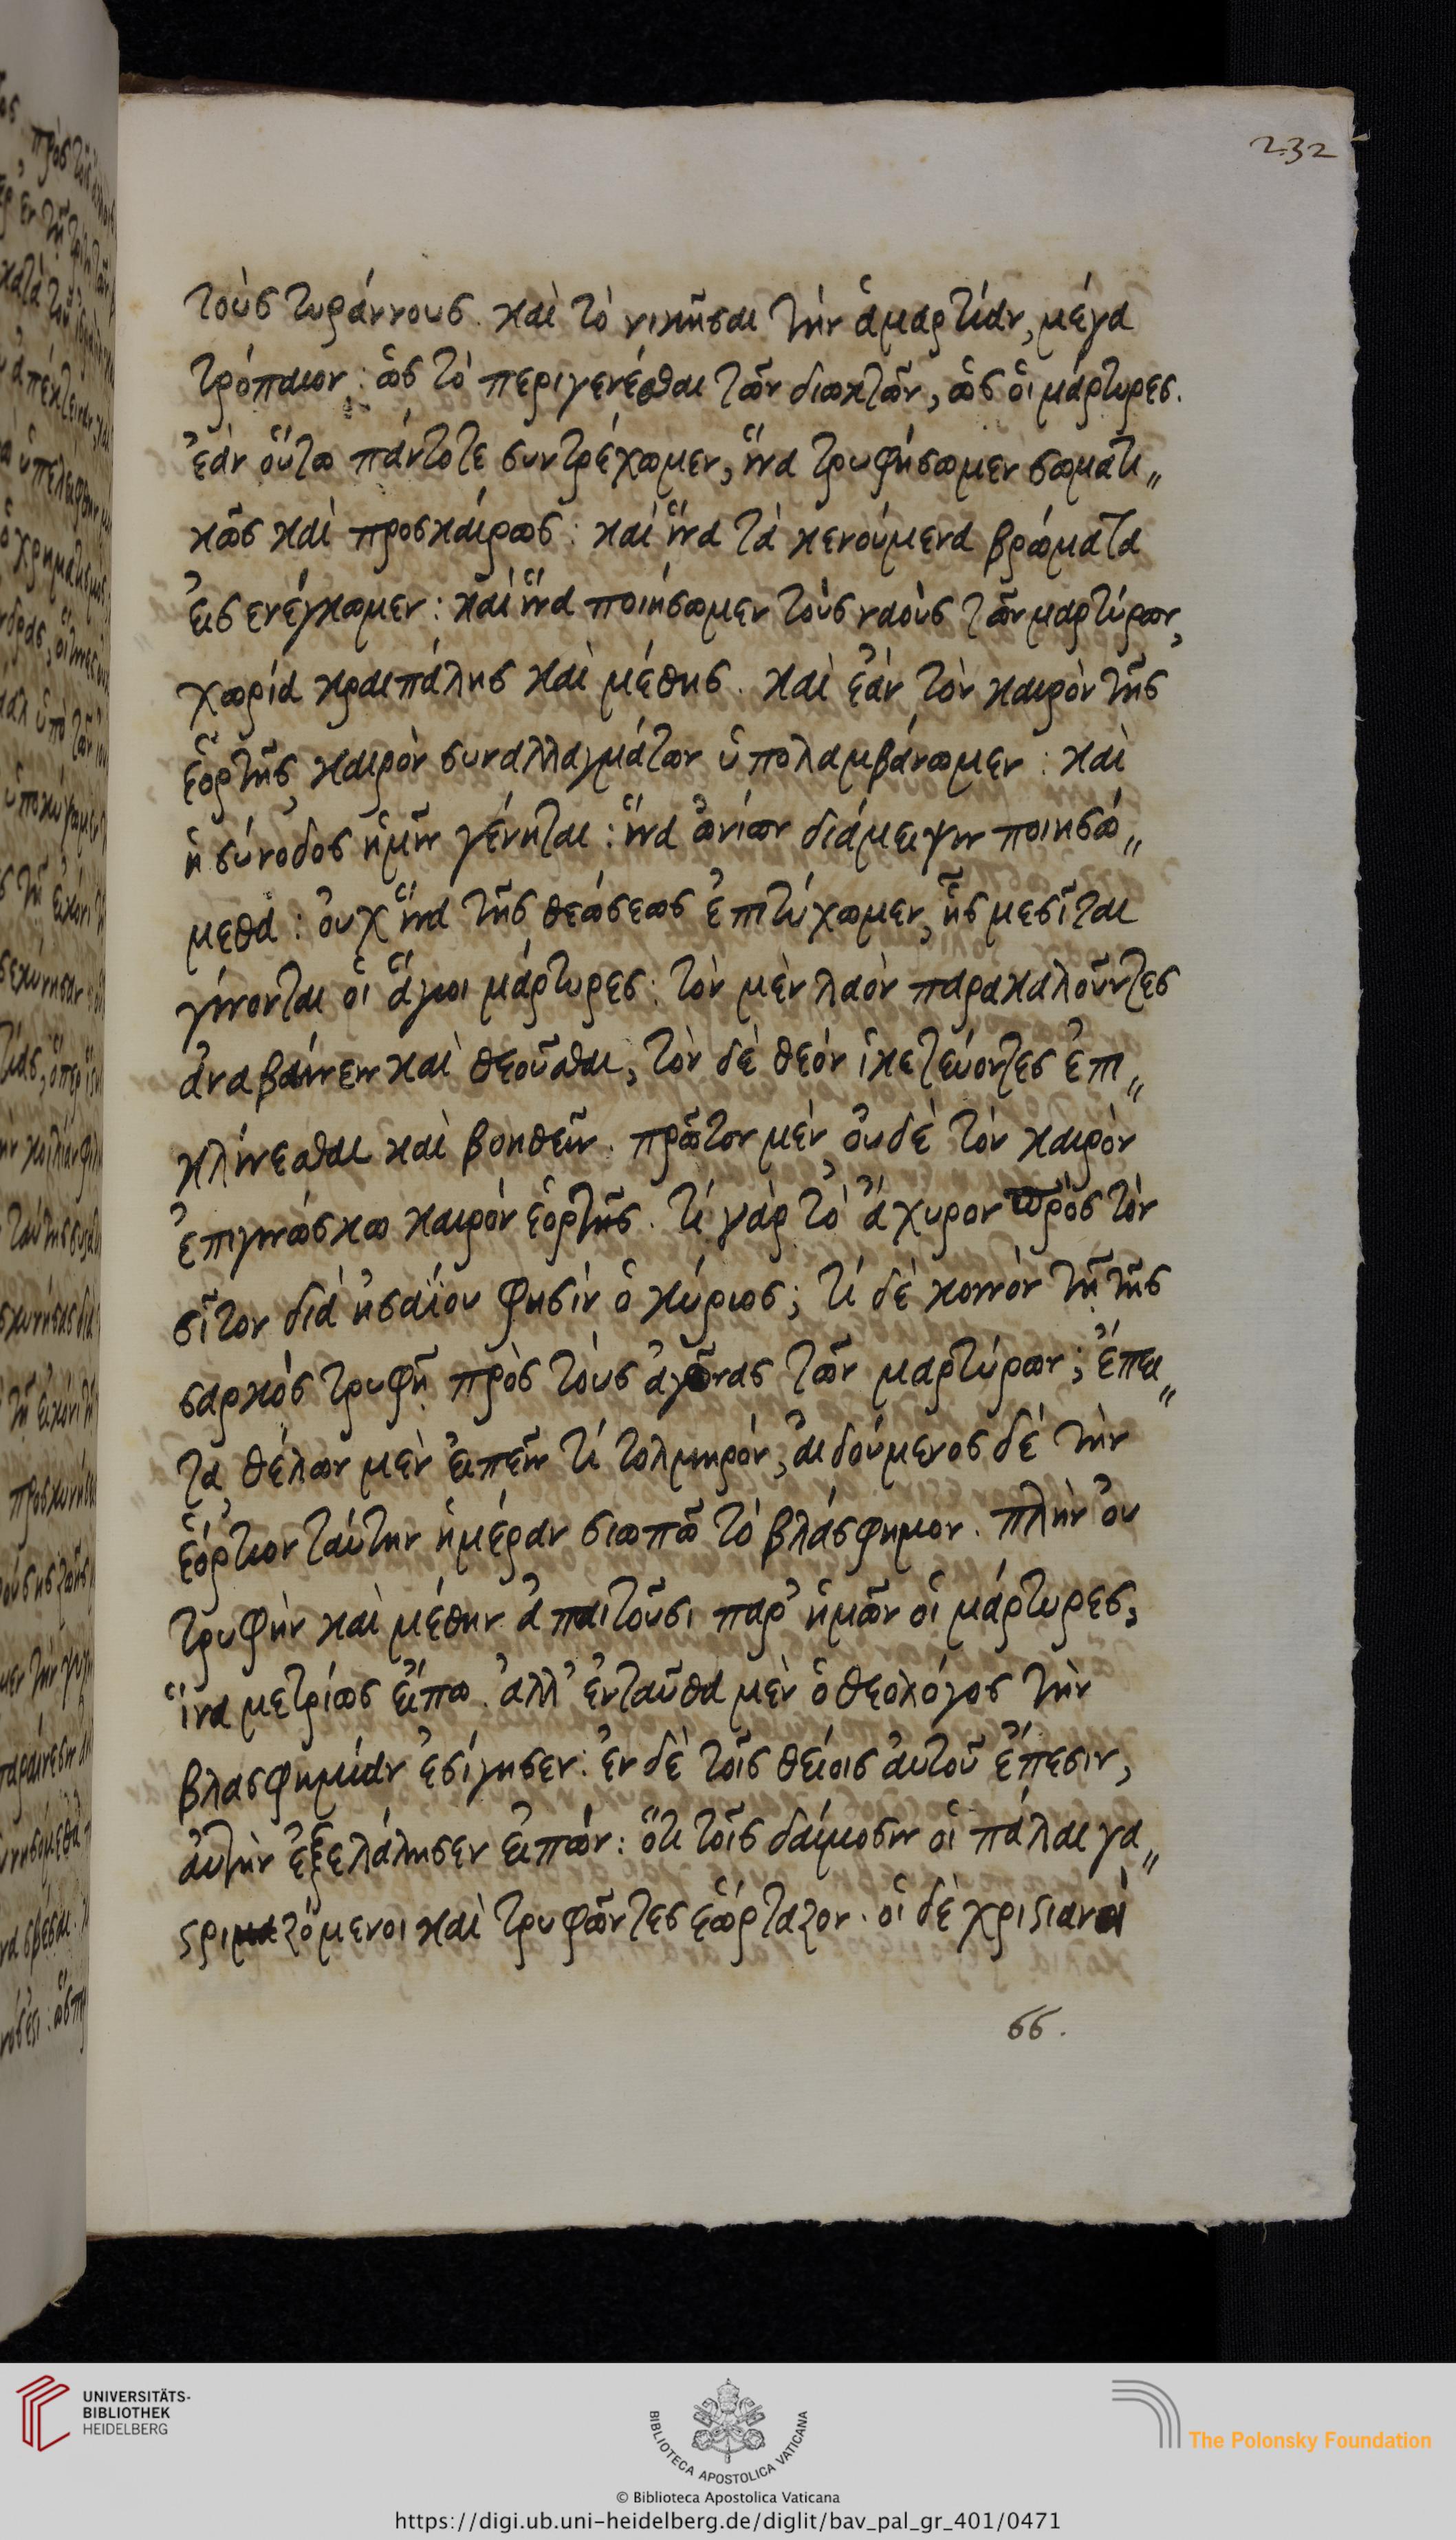 232
τοὺς τυράννους. καὶ τὸ νικῆσαι τὴν ἁμαρτίαν, μέγα
τρόπαιον: ὡς τὸ περιγενέσθαι τῶν διωκτῶν, ὡς οἱ μάρτυρες.
ἐὰν οὕτω πάντοτε συντρέχωμεν, ἵνα τρυφήσωμεν σωματι„
κῶς καὶ προσκαίρως: καὶ ἵνα τὰ κενούμενα βρώματα
εἰσενέγκωμεν: καὶ ἵνα ποιήσωμεν τοὺς ναοὺς τῶν μαρτύρων,
χωρία κραιπάλης καὶ μέθης. καὶ ἐὰν τὸν καιρὸν τῆς
ἑορτῆς, καιρὸν συναλλαγμάτων ὑπολαμβάνωμεν: καὶ
ἡ σύνοδος ἡμῖν γένηται: ἵνα ὠνίων διάμειψιν ποιησώ„
μεθα: οὐχ ἵνα τῆς θεώσεως ἐπιτύχωμεν, ἧς μεσῖται
γίνονται οἱ ἅγιοι μάρτυρες: τὸν μὲν λαὸν παρακαλοῦντες
ἀναβαίνειν καὶ θεοῦσθαι, τὸν δὲ θεὸν ἱκετεύοντες ἐπι„
κλίνεσθαι καὶ βοηθεῖν. πρῶτον μὲν οὐδὲ τὸν καιρὸν
ἐπιγινώσκω καιρὸν ἑορτῆς. τί γὰρ τὸ ἄχυρον πρὸς τὸν
σῖτον διὰ ἠσαΐου φησὶν ὁ κύριος; τί δὲ κοινὸν τῇ τῆς
σαρκὸς τρυφῇ πρὸς τοὺς ἀγῶνας τῶν μαρτύρων; ἔπει„
τα θέλων μὲν εἰπεῖν τί τολμηρόν, αἰδούμενος δὲ τὴν
ἑόρτιον ταύτην ἡμέραν σιωπῶ τὸ βλάσφημον. πλὴν οὐ
τρυφὴν καὶ μέθην ἀπαιτοῦσι παρ' ἡμῶν οἱ μάρτυρες,
ἵνα μετρίως εἴπω. ἀλλ' ἐνταῦθα μὲν ὁ θεολόγος τὴν
βλασφημίαν ἐσίγησεν: ἐν δὲ τοῖς θείοις αὐτοῦ ἔπεσιν,
αὐτὴν ἐξελάλησεν εἰπών: ὅτι τοῖς δαίμοσιν οἱ πάλαι γα„
στριμαζόμενοι καὶ τρυφῶντες ἑώρταζον. οἱ δὲ χριστιανοὶ
66.
UNIVERSITÄTS-
BIBLIOTHEK
HEIDELBERG
BIBLIOTECA APOSTOLICA VATICANA
The Polonsky Foundation
© Biblioteca Apostolica Vaticana
https://digi.ub.uni-heidelberg.de/diglit/bav_pal_gr_401/0471